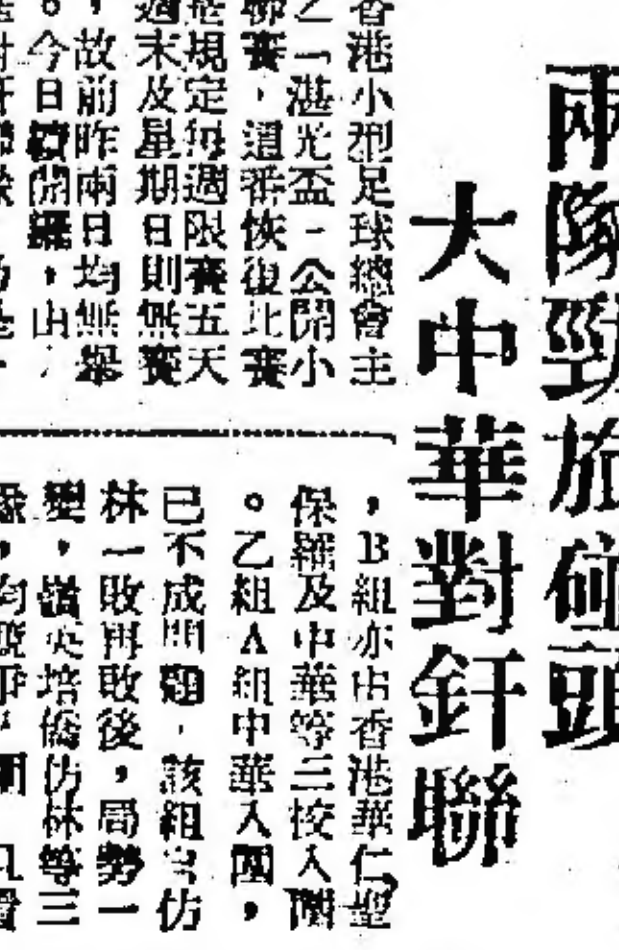 兩隊勁旅碰頭
大中華對釬聯
香港小型足球總會主
之「湛光盃」公開小
聯賽,週番恢復比賽
規定每週限賽五天
週末及星期日則無賽
,故前昨兩日均無舉
。今日續開羅,由
,B組亦由香港華仁聖
保羅及中華等三校入圍
。乙組A組中華入圍,
已不成問題,該組
仿
林一敗再敗後,局勢一
變,嶺英培僑仿林等三